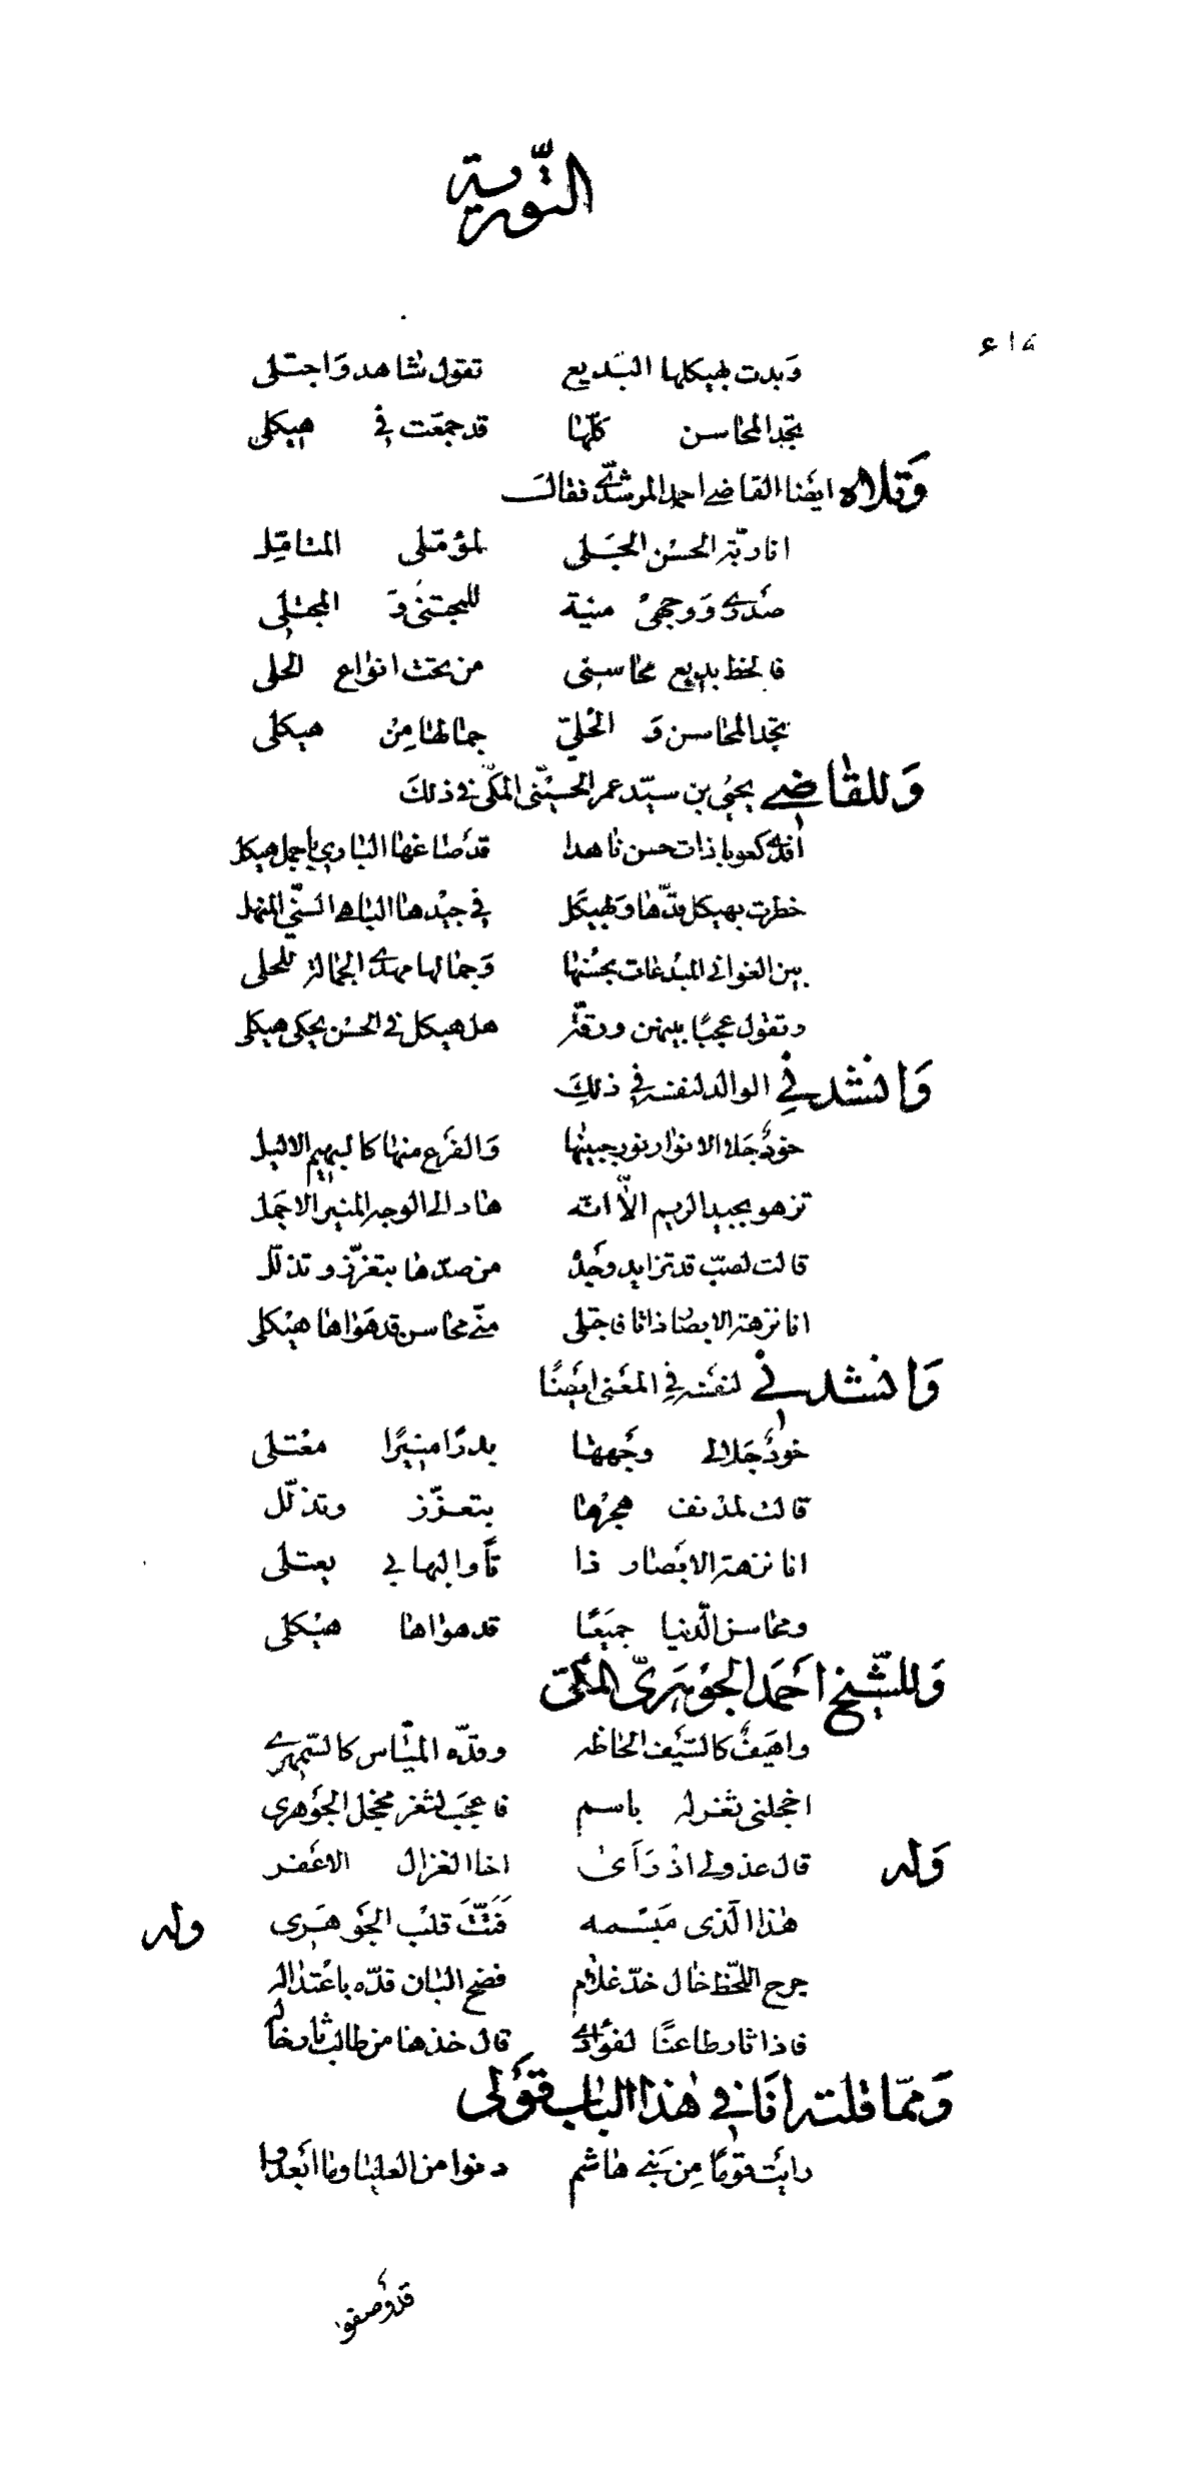 التّورية
وَبدت بهيكلها البَديع تقول شاهد وَاجتلى
تجد المحاسن كلّها قد جمعت في هيكلى
وَتلاه ايضَا القاضي احمد المرشدىّ فقالَ
انا ربّة الحسْن الجَلى لمؤمّلى المتامّل
صَدرى وَوجهىْ منية للمجتنىْ وَ المجتلى
فالحظ بديع محاسنى من تحت انواع الحلى
تجد المحاسن وَ الحُليّ جمالها مِنْ هيكلى
وَللقاضي يحيى بن سيّد عمر الحسيْنى المكّى في ذلكَ
افدى كعوبا ذات حسن ناهدا قد صَاغها البارى باجمل هيكل
خطرت بهيكل قدّها وَبهيكَل في جيْدها الباهى السنّى المنهل
بين الغوانى المبْدعات بحسْنها وَجمالها مهدى الجمالة للحلى
وتقول عجبًا بينهن ورقّة هل هيكل في الحسْن يحكى هيكلى
وَانشدنِي الوالد لنفسه في ذلِكَ
خودٌ جَلا الانوار نور جبينها وَالفرَع منها كالبهيم الاليل
تزهو بجيد الريم الاّ انّه هاد الى الوجه المنير الاجمَل
قالت لصبّ قد تزايد وجَدهُ من صدّها بتعزّز وتذلّل
انا نزهة الابصَار ذاتا فاجتلى منّي محاسن قد هَواها هيْكلى
وَانشدنِي لنفسَه فِي المعَنى ايضًا
خودٌ جَلا لى وجَهها بدرًا منيرًا معْتلى
قالت لمدْنف هجرْها بتعزّز وتذلّل
انا نزهة الابصَار ذا تًا والبها بي يعتلى
ومحاسن الدّنيا جميَعًا قد هواها هيْكلى
وَللشّيخ احَمَد الجوْهَرىّ المكّى
واهيَفٌ كالسَّيف الحاظه وقدّه الميّاس كالسّمهرى
اخجلنى ثغر له باسم فاعجَب لثغر مخجل الجوَهرى
وَله قال عذولى اذْ رَآىْ اخا الغزال الاعَفر
هٰذا الّذى مَبسْمه فَتّتَ قلبْ الجوَهَرى
وله
جرح اللحّظ خال خدّ غلام فضح البان قدّه باعْتداله
فاذا ثار طاعنًا لفؤادى قال خذها من طالب ثار خاله
وَممّا قلته انَا في هٰذا الباب قوَلى
رايَت قومًا مِن بَنى هاشم دنوا من العليا وما ابَعدوا
قد وصفوا